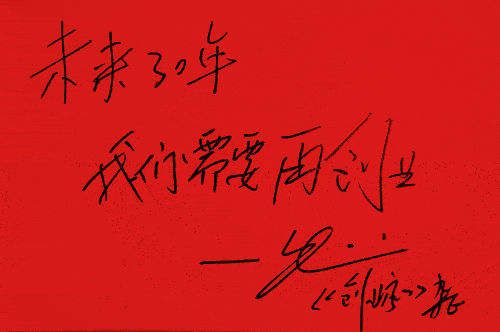 未来30年
我们需要再创业